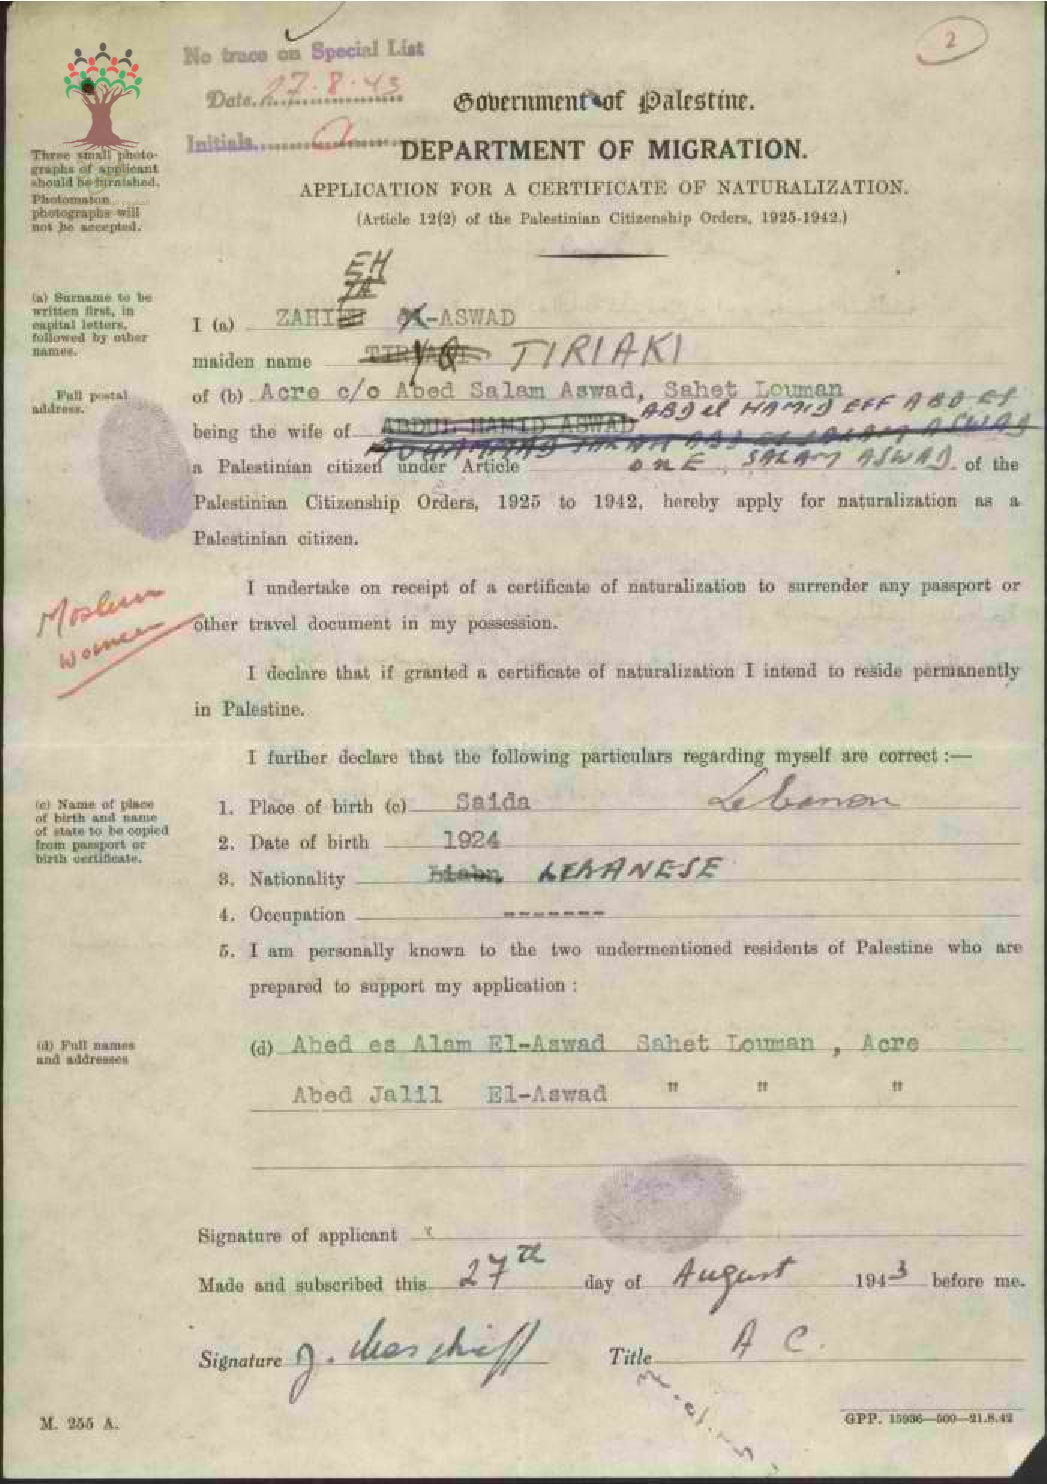 2
No trace on Special List
Date 27.8.43
Initials
Government of Palestine.
DEPARTMENT OF MIGRATION.
APPLICATION FOR A CERTIFICATE OF NATURALIZATION.
(Article 12(2) of the Palestinian Citizenship Orders, 1925-1942.)
Three small photo-
graphs of applicant
should be furnished.
Photomaton
photographs will
not be accepted.
(a) Surname to be
written first, in
capital letters,
followed by other
names.
EH
I (a) ZAHI -ASWAD
maiden name TIRIAKI
Full postal
address.
of (b) Acre c/o Abed Salam Aswad, Sahet Louman
being the wife of ABDUL HAMID ASWAD ABD el HAMID EFF ABD ES
a Palestinian citizen under Article ONE SALAM ASWAD of the
Palestinian Citizenship Orders, 1925 to 1942, hereby apply for naturalization as a
Palestinian citizen.
I undertake on receipt of a certificate of naturalization to surrender any passport or
other travel document in my possession.
Moslem
women
I declare that if granted a certificate of naturalization I intend to reside permanently
in Palestine.
I further declare that the following particulars regarding myself are correct :—
(c) Name of place
of birth and name
of state to be copied
from passport or
birth certificate.
1. Place of birth (c) Saida Lebanon
2. Date of birth 1924
3. Nationality LEBANESE
4. Occupation -------
5. I am personally known to the two undermentioned residents of Palestine who are
prepared to support my application :
(d) Full names
and addresses
(d) Abed es Alam El-Aswad Sahet Louman , Acre
Abed Jalil El-Aswad " " "
Signature of applicant
Made and subscribed this 27th day of August 1943 before me.
Signature Title A C.
M. 255 A.
GPP. 15936—500—21.8.42